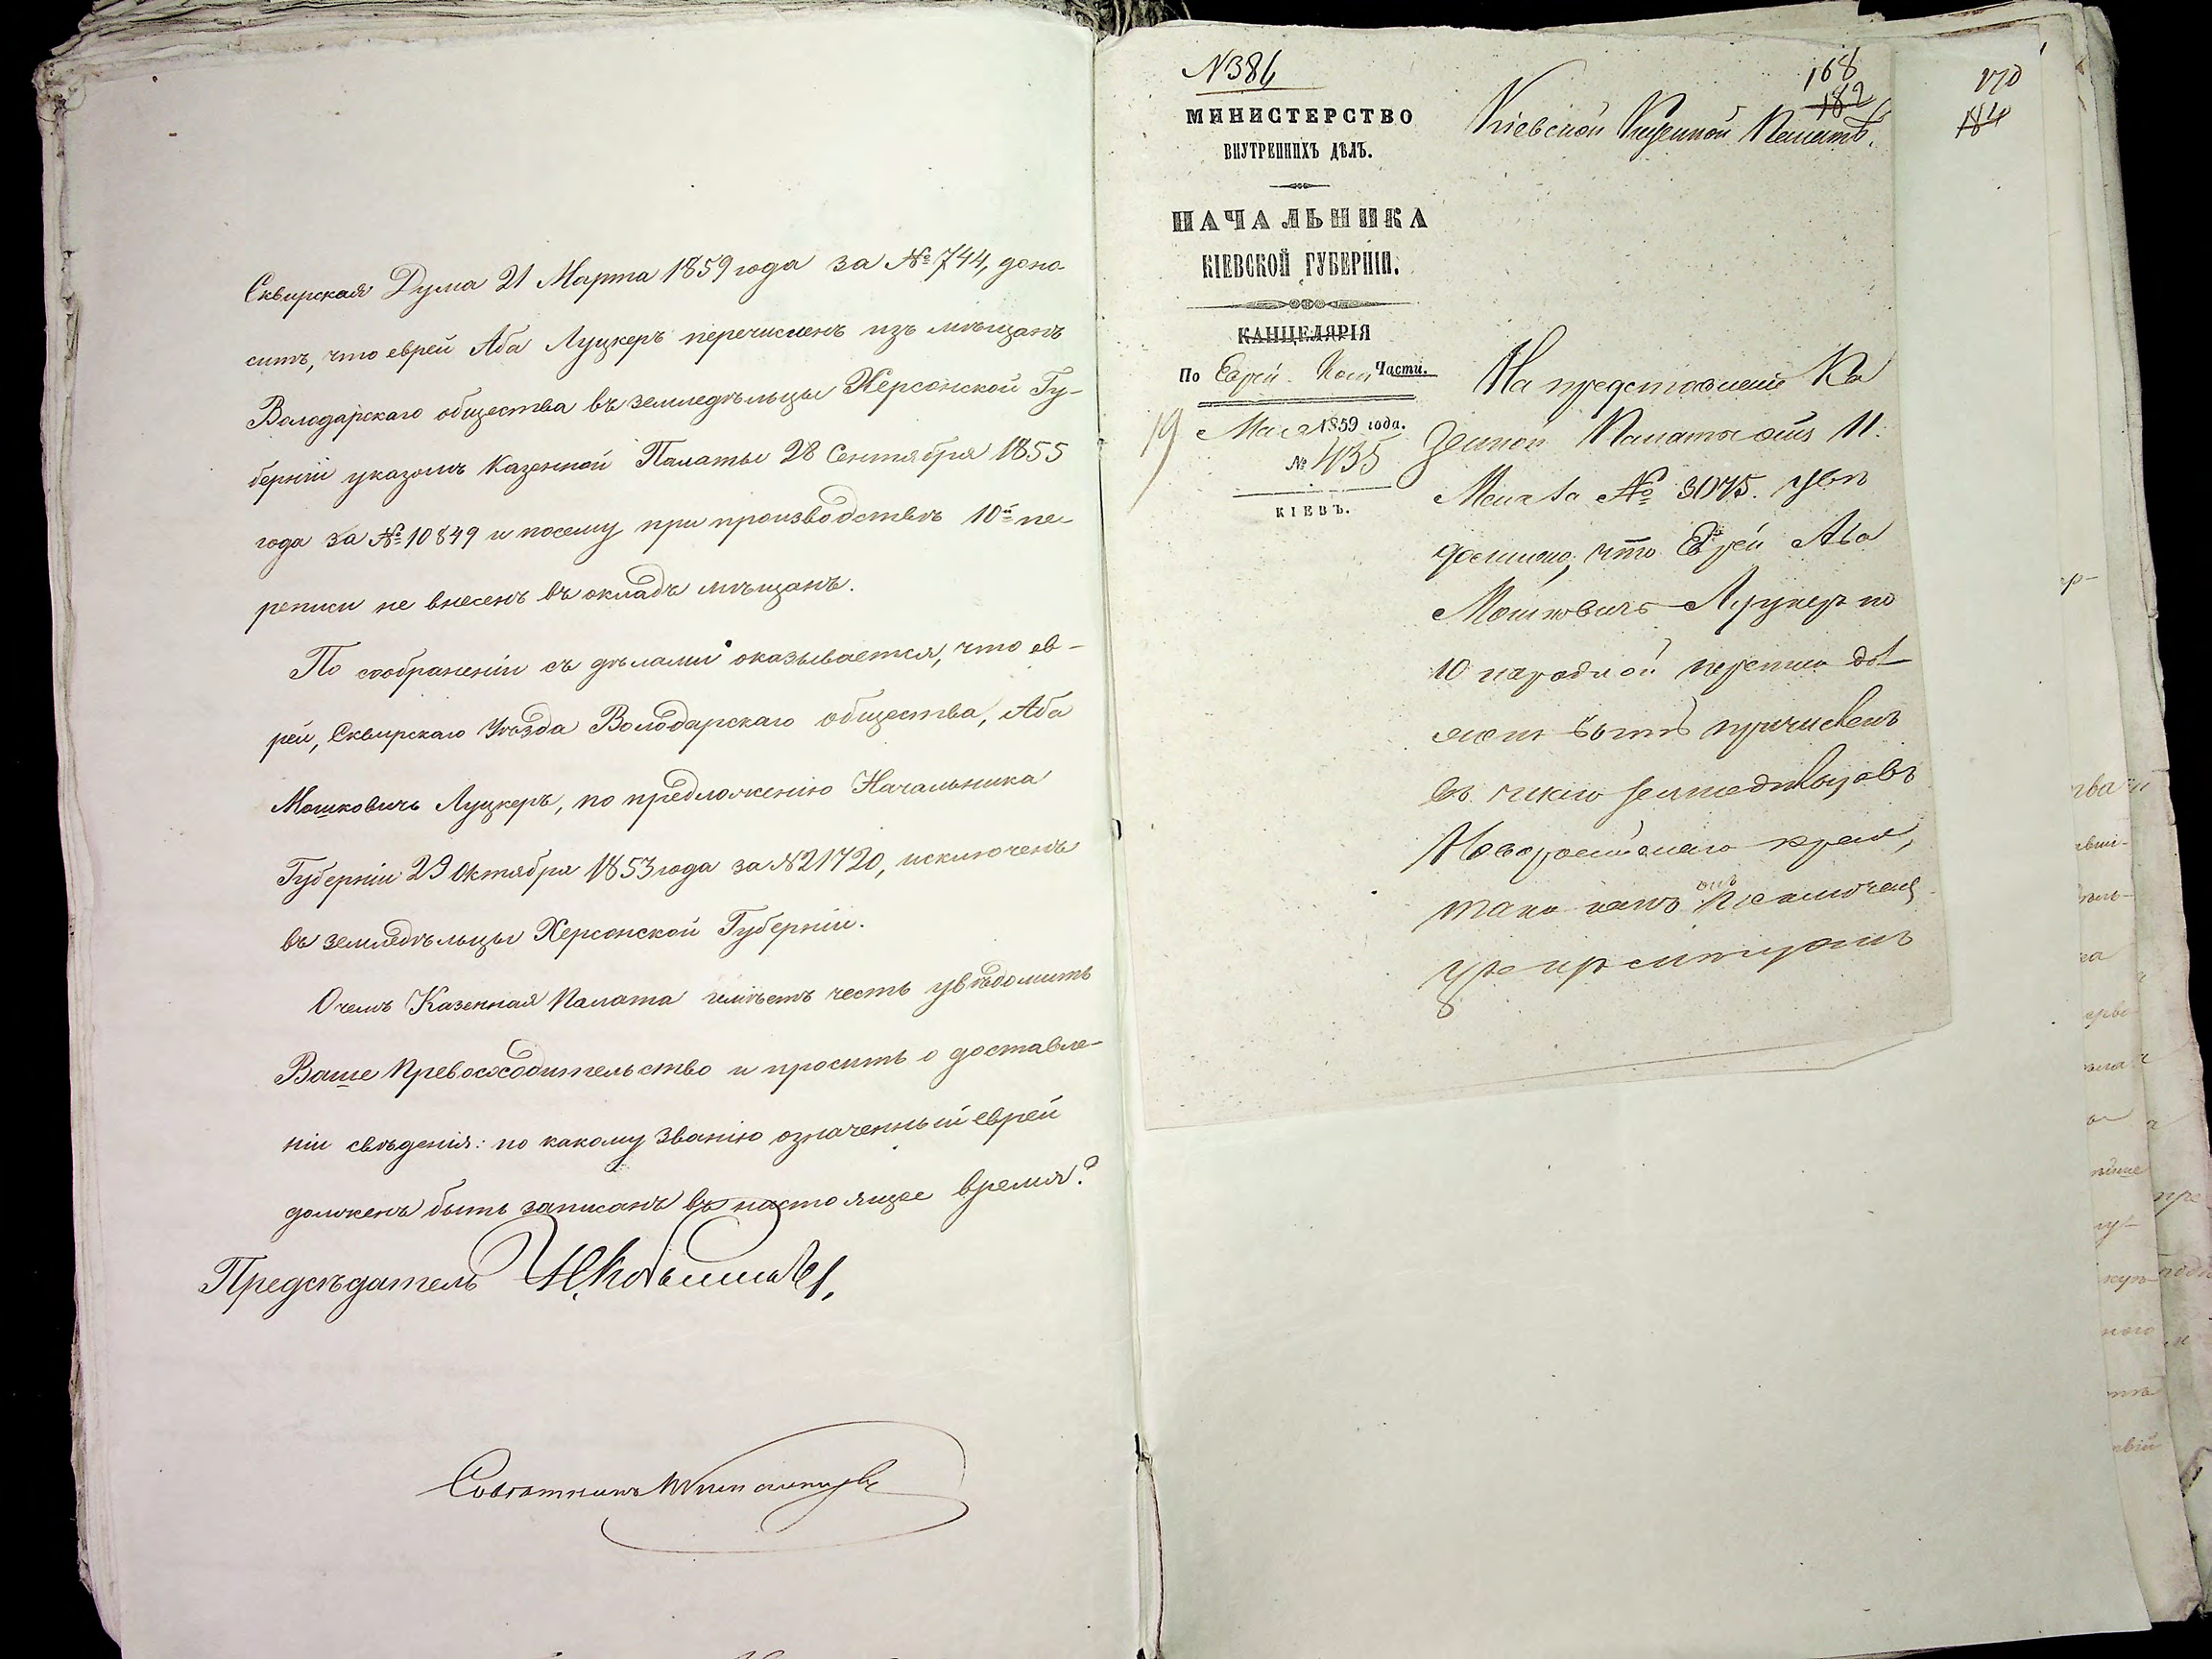 Сквирская Дума 21 Марта 1859 года за № 744, доно-
ситъ, что еврей Аба Луцкеръ перечисленъ изъ мѣщанъ
Володарскаго общества въ земледѣльцы Херсонской Гу-
берніи указомъ Казенной Палаты 28 Сентября 1855
года за № 10849 и посему при производствѣ 10й пе-
реписи не внесенъ въ окладъ мѣщанъ.
По соображеніи съ дѣлами оказывается, что ев-
рей, Сквирскаго Уѣзда Володарскаго общества, Аба
Мошковичъ Луцкеръ, по предложенію Начальника
Губерніи 29 Октября 1853 года за № 21720, исключенъ
въ земледѣльцы Херсонской Губерніи.
О чемъ Казенная Палата имѣетъ честь увѣдомить
Ваше Превосходительство и проситъ о доставле-
ніи свѣденія: по какому званію означенный еврей
долженъ быть записанъ въ настоящее время?
Предсѣдатель
Совѣтникъ
N 386
168
182
МИНИСТЕРСТВО
ВНУТРЕННИХЪ ДѢЛЪ.
НАЧАЛЬНИКА
КІЕВСКОЙ ГУБЕРНІИ.
КАНЦЕЛЯРІЯ
По Еврей. Части.
19 Мая 1859 года.
№ 435
КІЕВЪ.
Кіевской Казенной Палатѣ.
На представленіе Ка
зенной Палаты отъ 11.
Марта № 3075. увѣ
домляю, что Еврей Аба
Мошковичъ Луцкеръ по
10 народной переписи дол
женъ быть причисленъ
въ число земледѣльцовъ
Новороссійскаго края,
такъ какъ онъ исключенъ
170
184